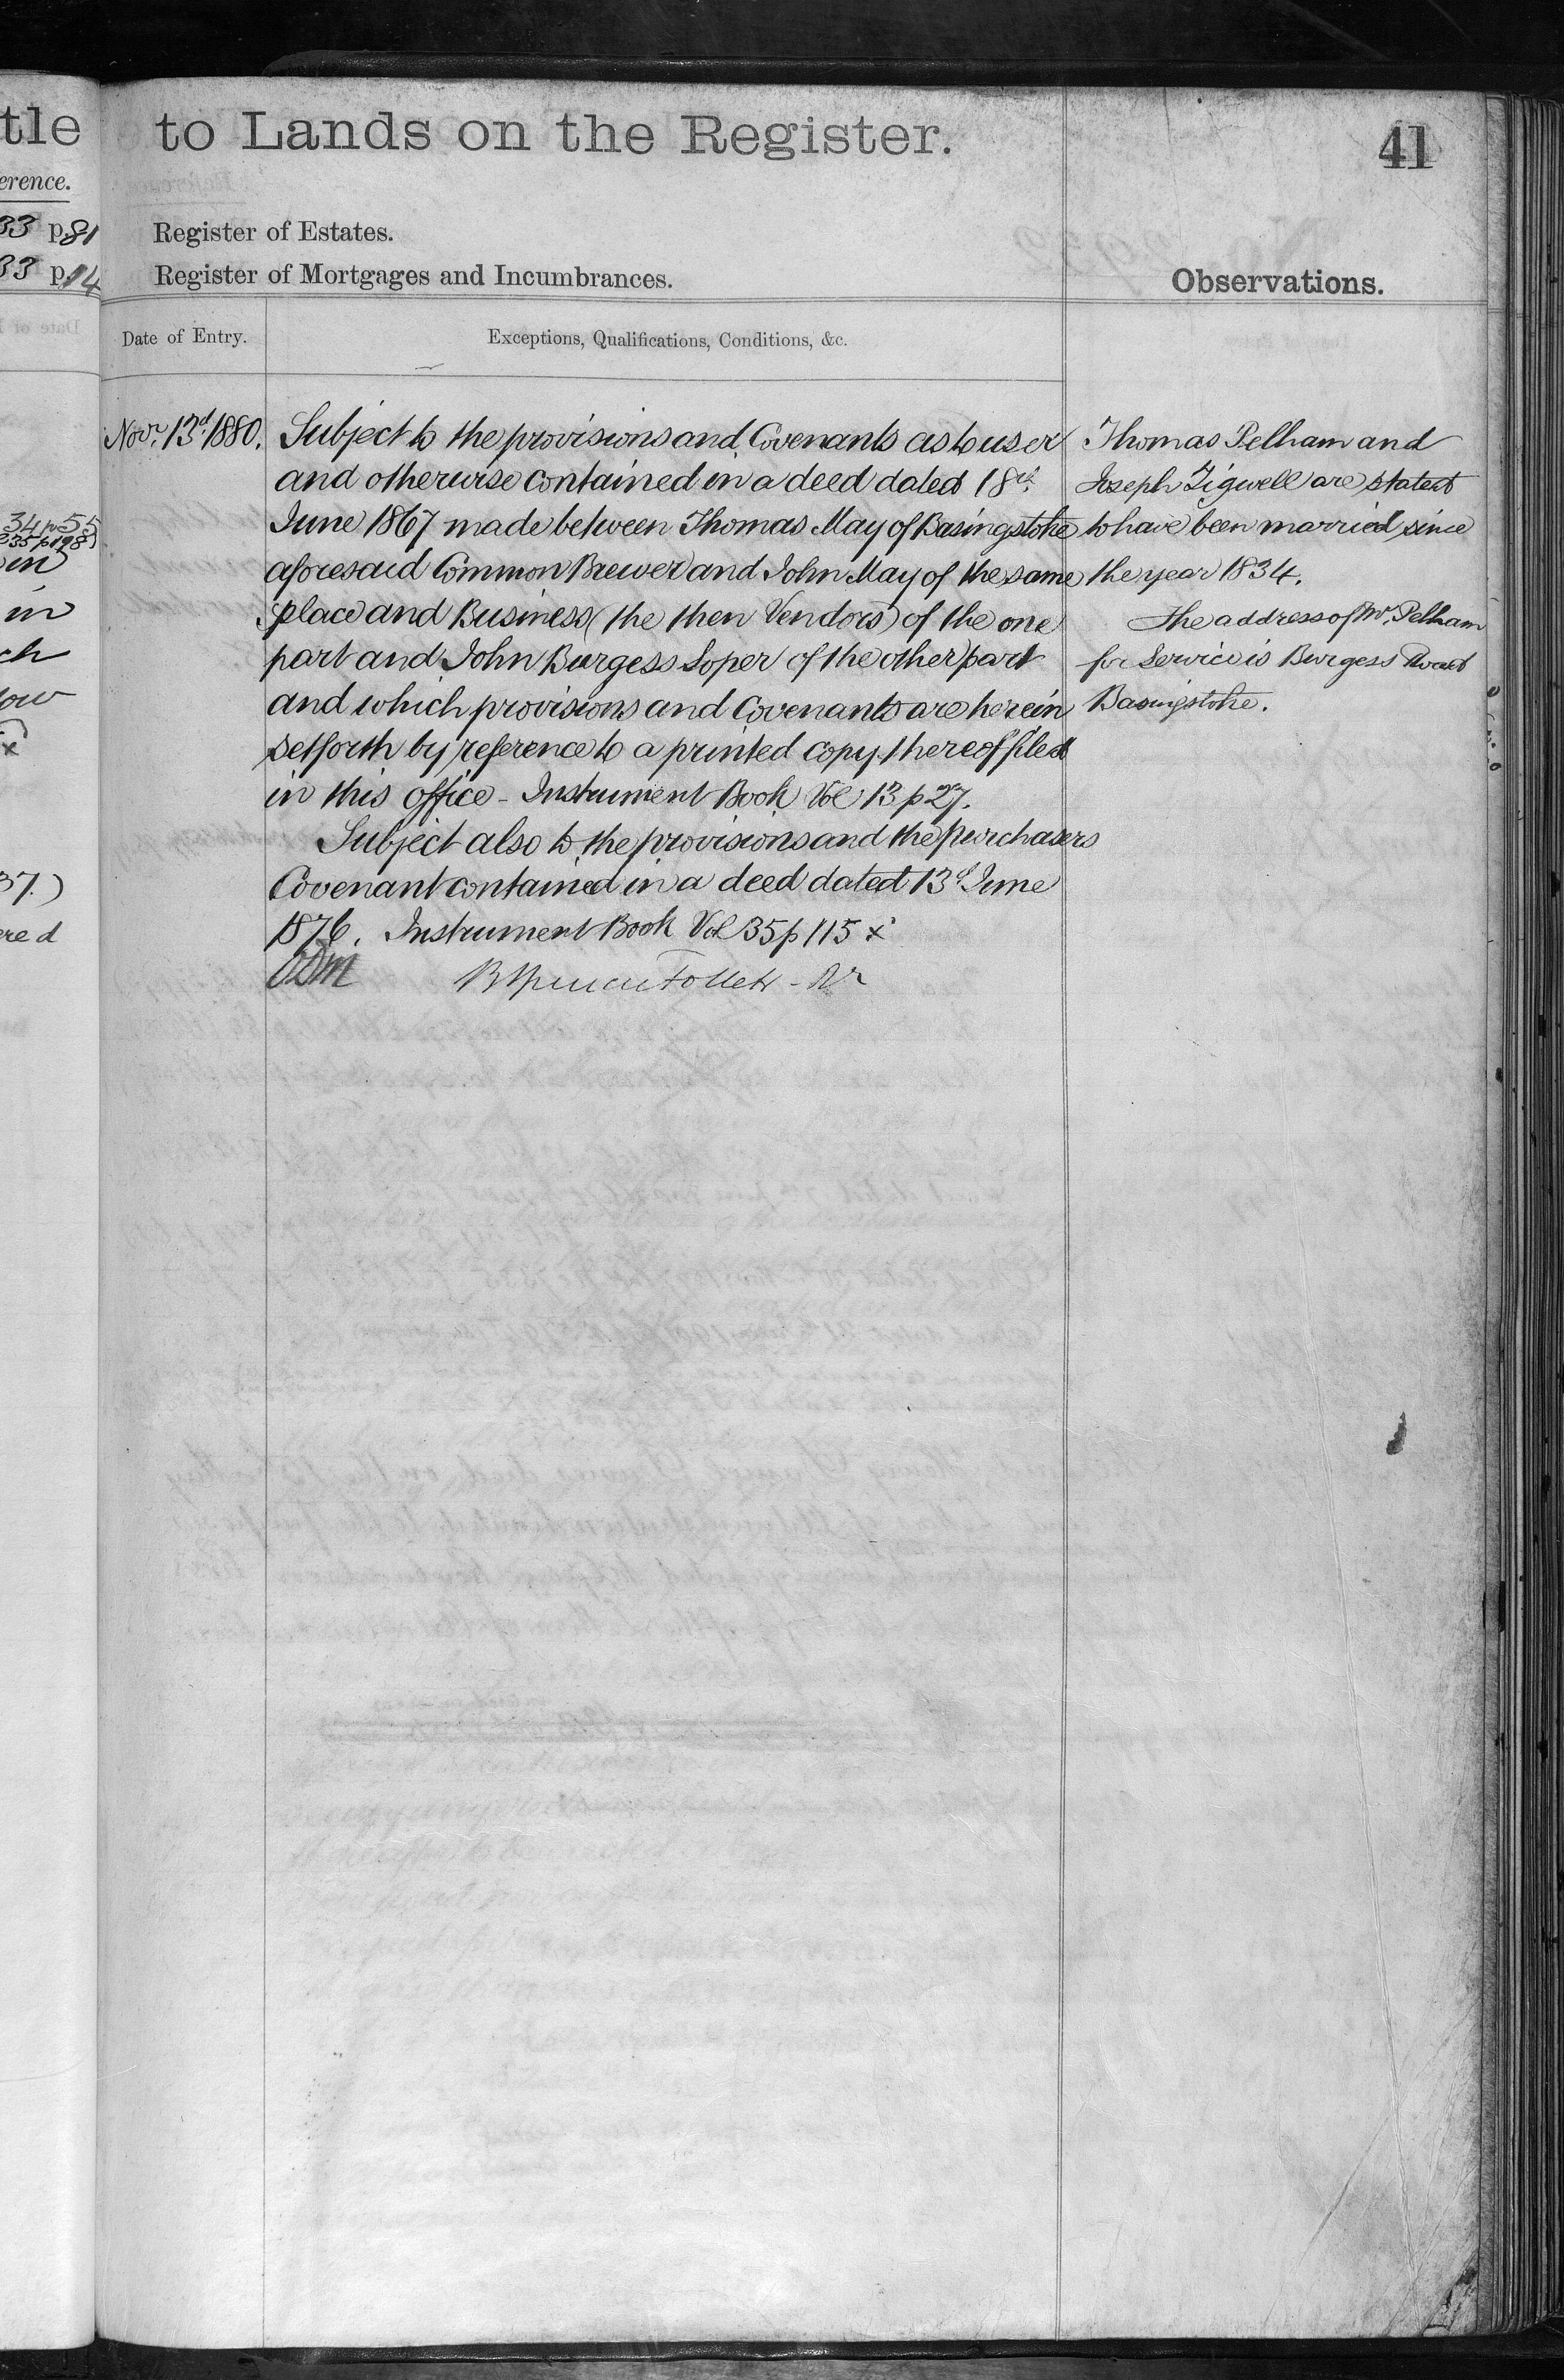 tle to Lands on the Register.
41
erence.
33 p 81
Register of Estates.
33 p 14
Register of Mortgages and Incumbrances.
Observations.
Date of Entry.
Exceptions, Qualifications, Conditions, &c.
Novr. 13th 1880.
Subject to the provisions and Covenants as to user
and otherwise contained in a deed dated 18th
June 1867 made between Thomas May of Basingstoke
aforesaid Common Brewer and John May of the same
place and Business (the then Vendors) of the one
part and John Burgess Soper of the other part
and which provisions and Covenants are herein
set forth by reference to a printed copy thereof filed
in this office - Instrument Book Vol 13 p 27.
Subject also to the provisions and the purchasers
Covenant contained in a deed dated 13th June
1876. Instrument Book Vol 35 p 115 x
Thomas Pelham and
Joseph Tigwell are stated
to have been married since
the year 1834.
The address of Mr. Pelham
for Service is Burgess Road
Basingstoke.
34 p 55
35 p 198)
in
in
ch
low
x
37.)
ered